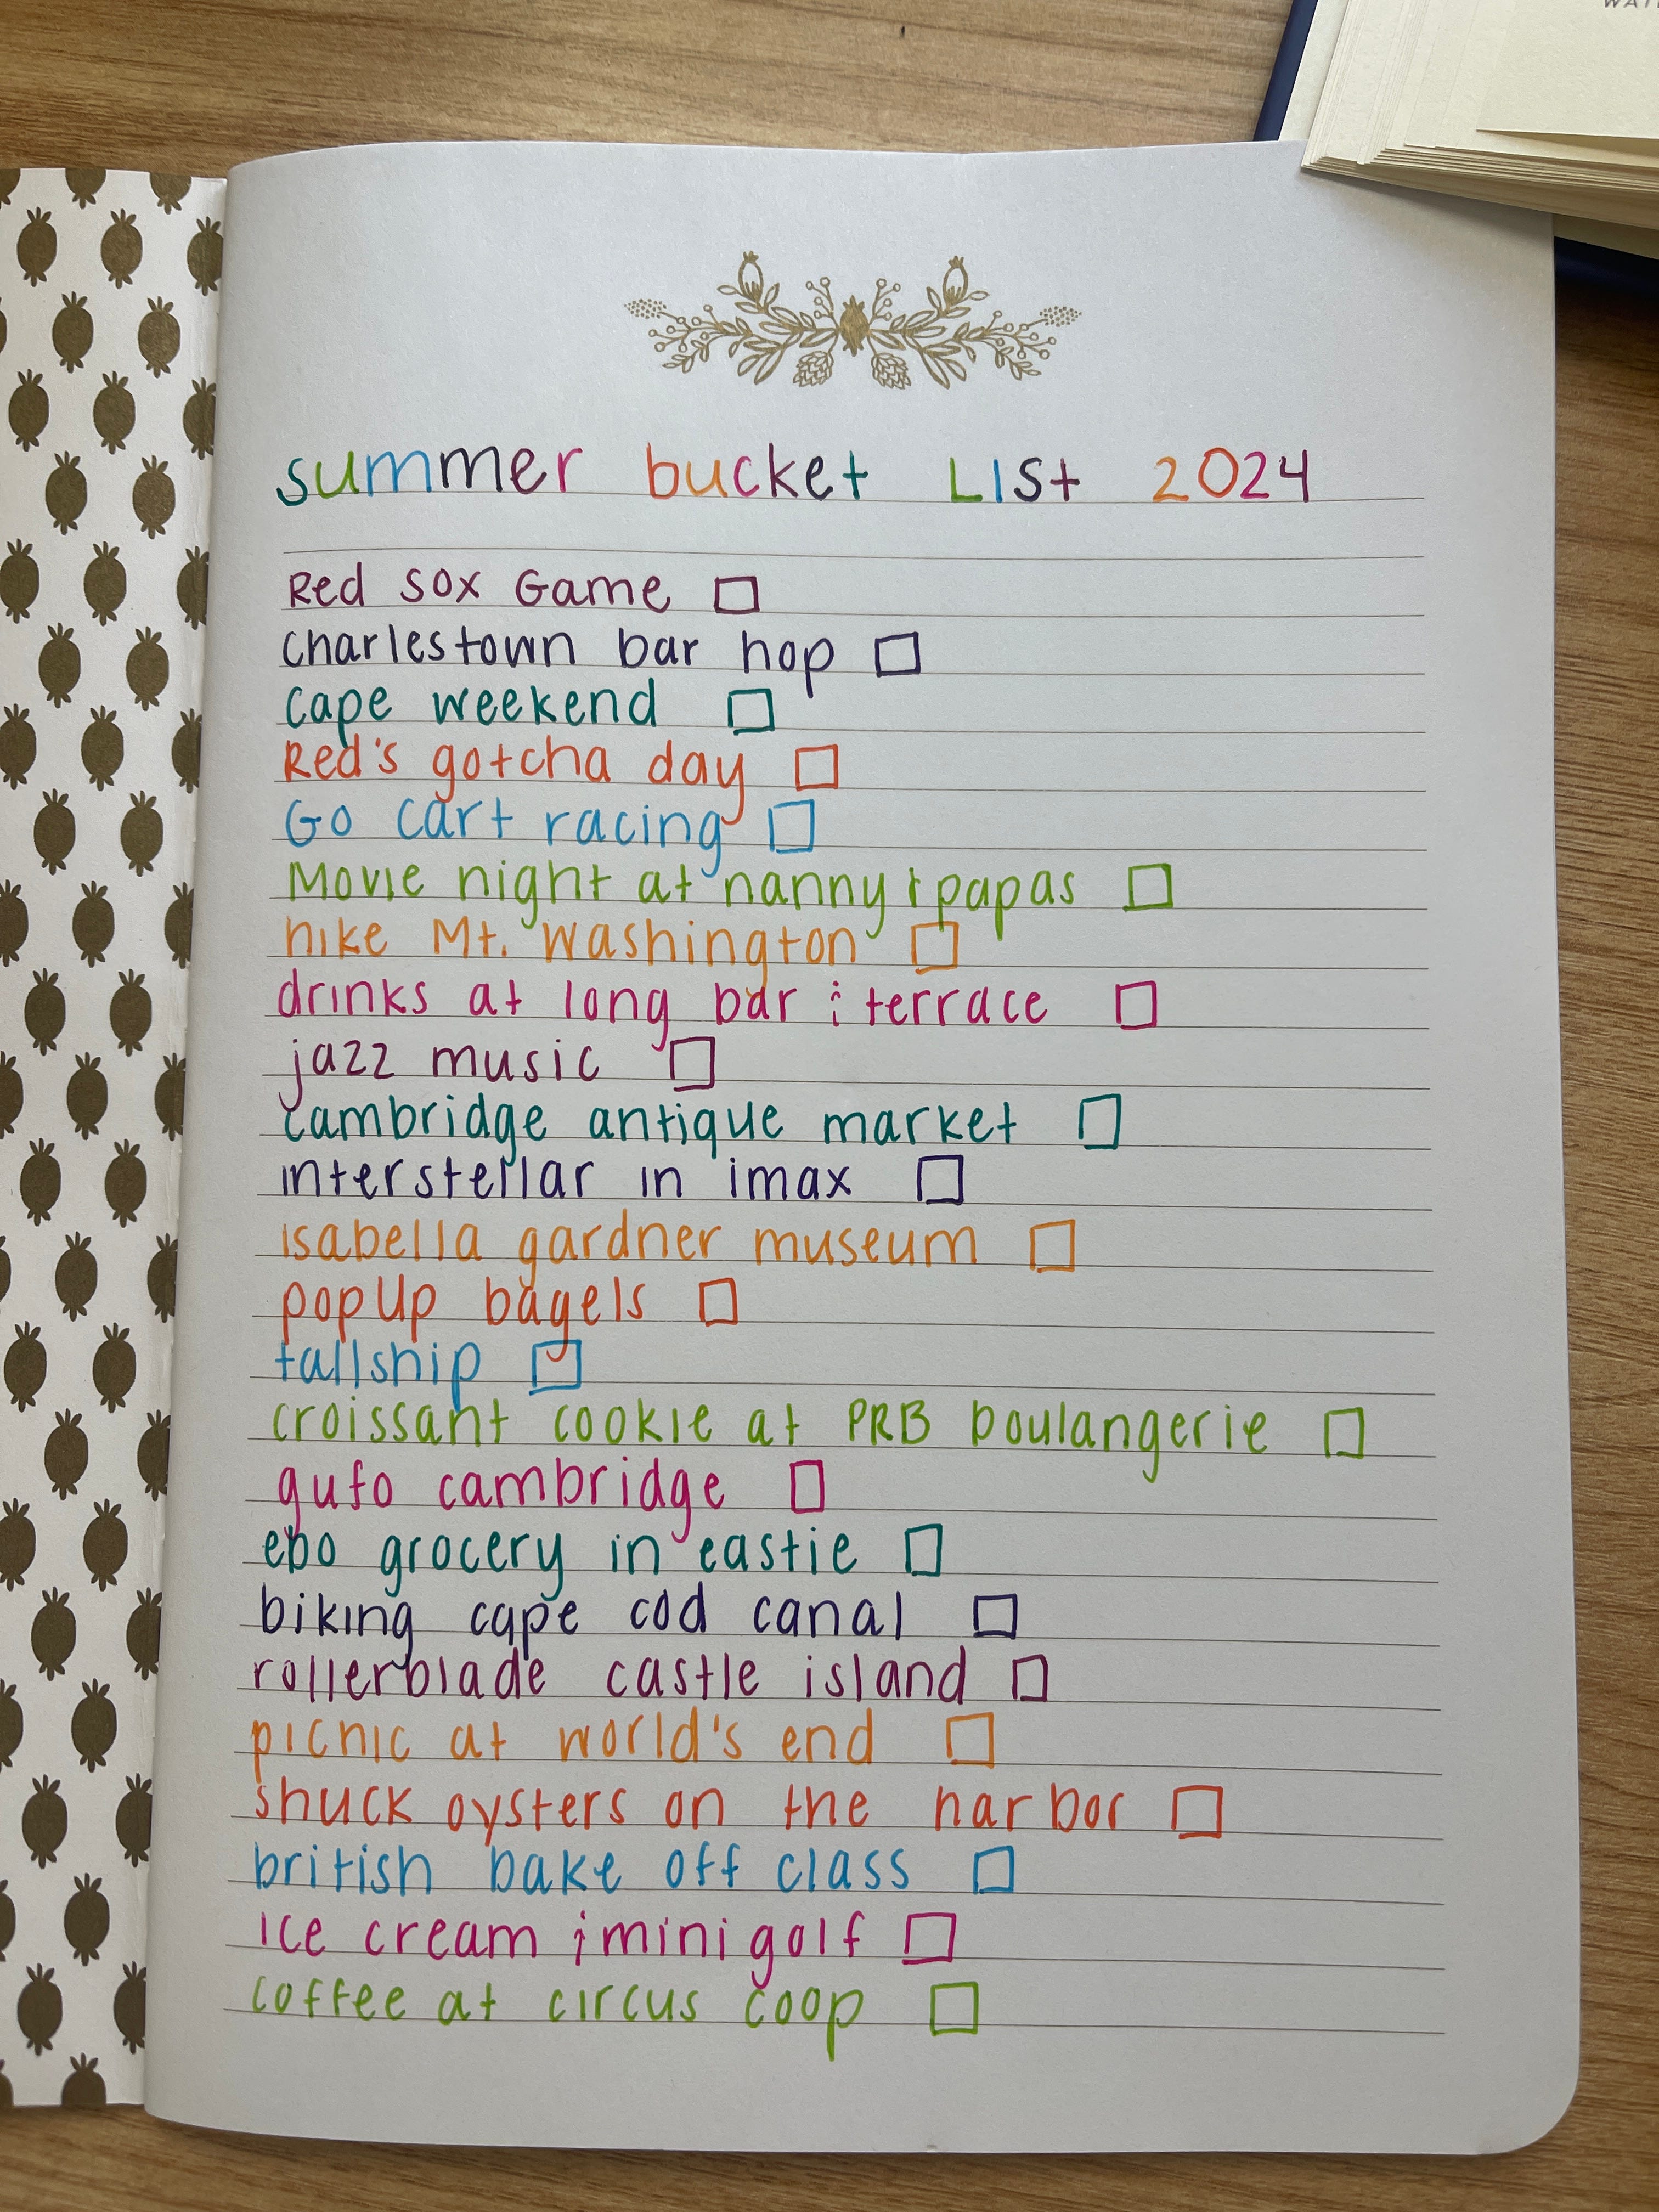 WAT
summer bucket LISt 2024
Red sox Game
charlestown bar hop
cape weekend
Red's gotcha day
Go cart racing
Movie night at nanny & papas
hike Mt. Washington
drinks at long bar & terrace
jazz music
cambridge antique market
interstellar in imax
isabella gardner museum
popUp bagels
tallship
croissant cookie at PRB boulangerie
gufo cambridge
ebo grocery in eastie
biking cape cod canal
rollerblade castle island
picnic at world's end
shuck oysters on the harbor
british bake off class
ice cream & mini golf
coffee at circus coop